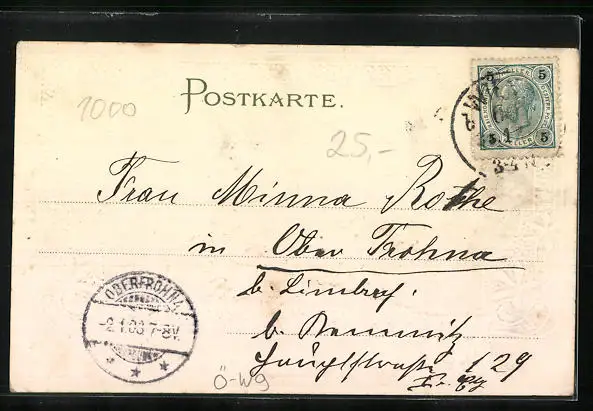 POSTKARTE.
1000
25,-
5 5
5 5
3-4 N
Frau Minna Rothe
in Ober Frohna
b. Limbach.
b. Chemnitz
Hauptstrasse 129
OBERFROHNA
2.1.03 7-8V.
Ö-W9